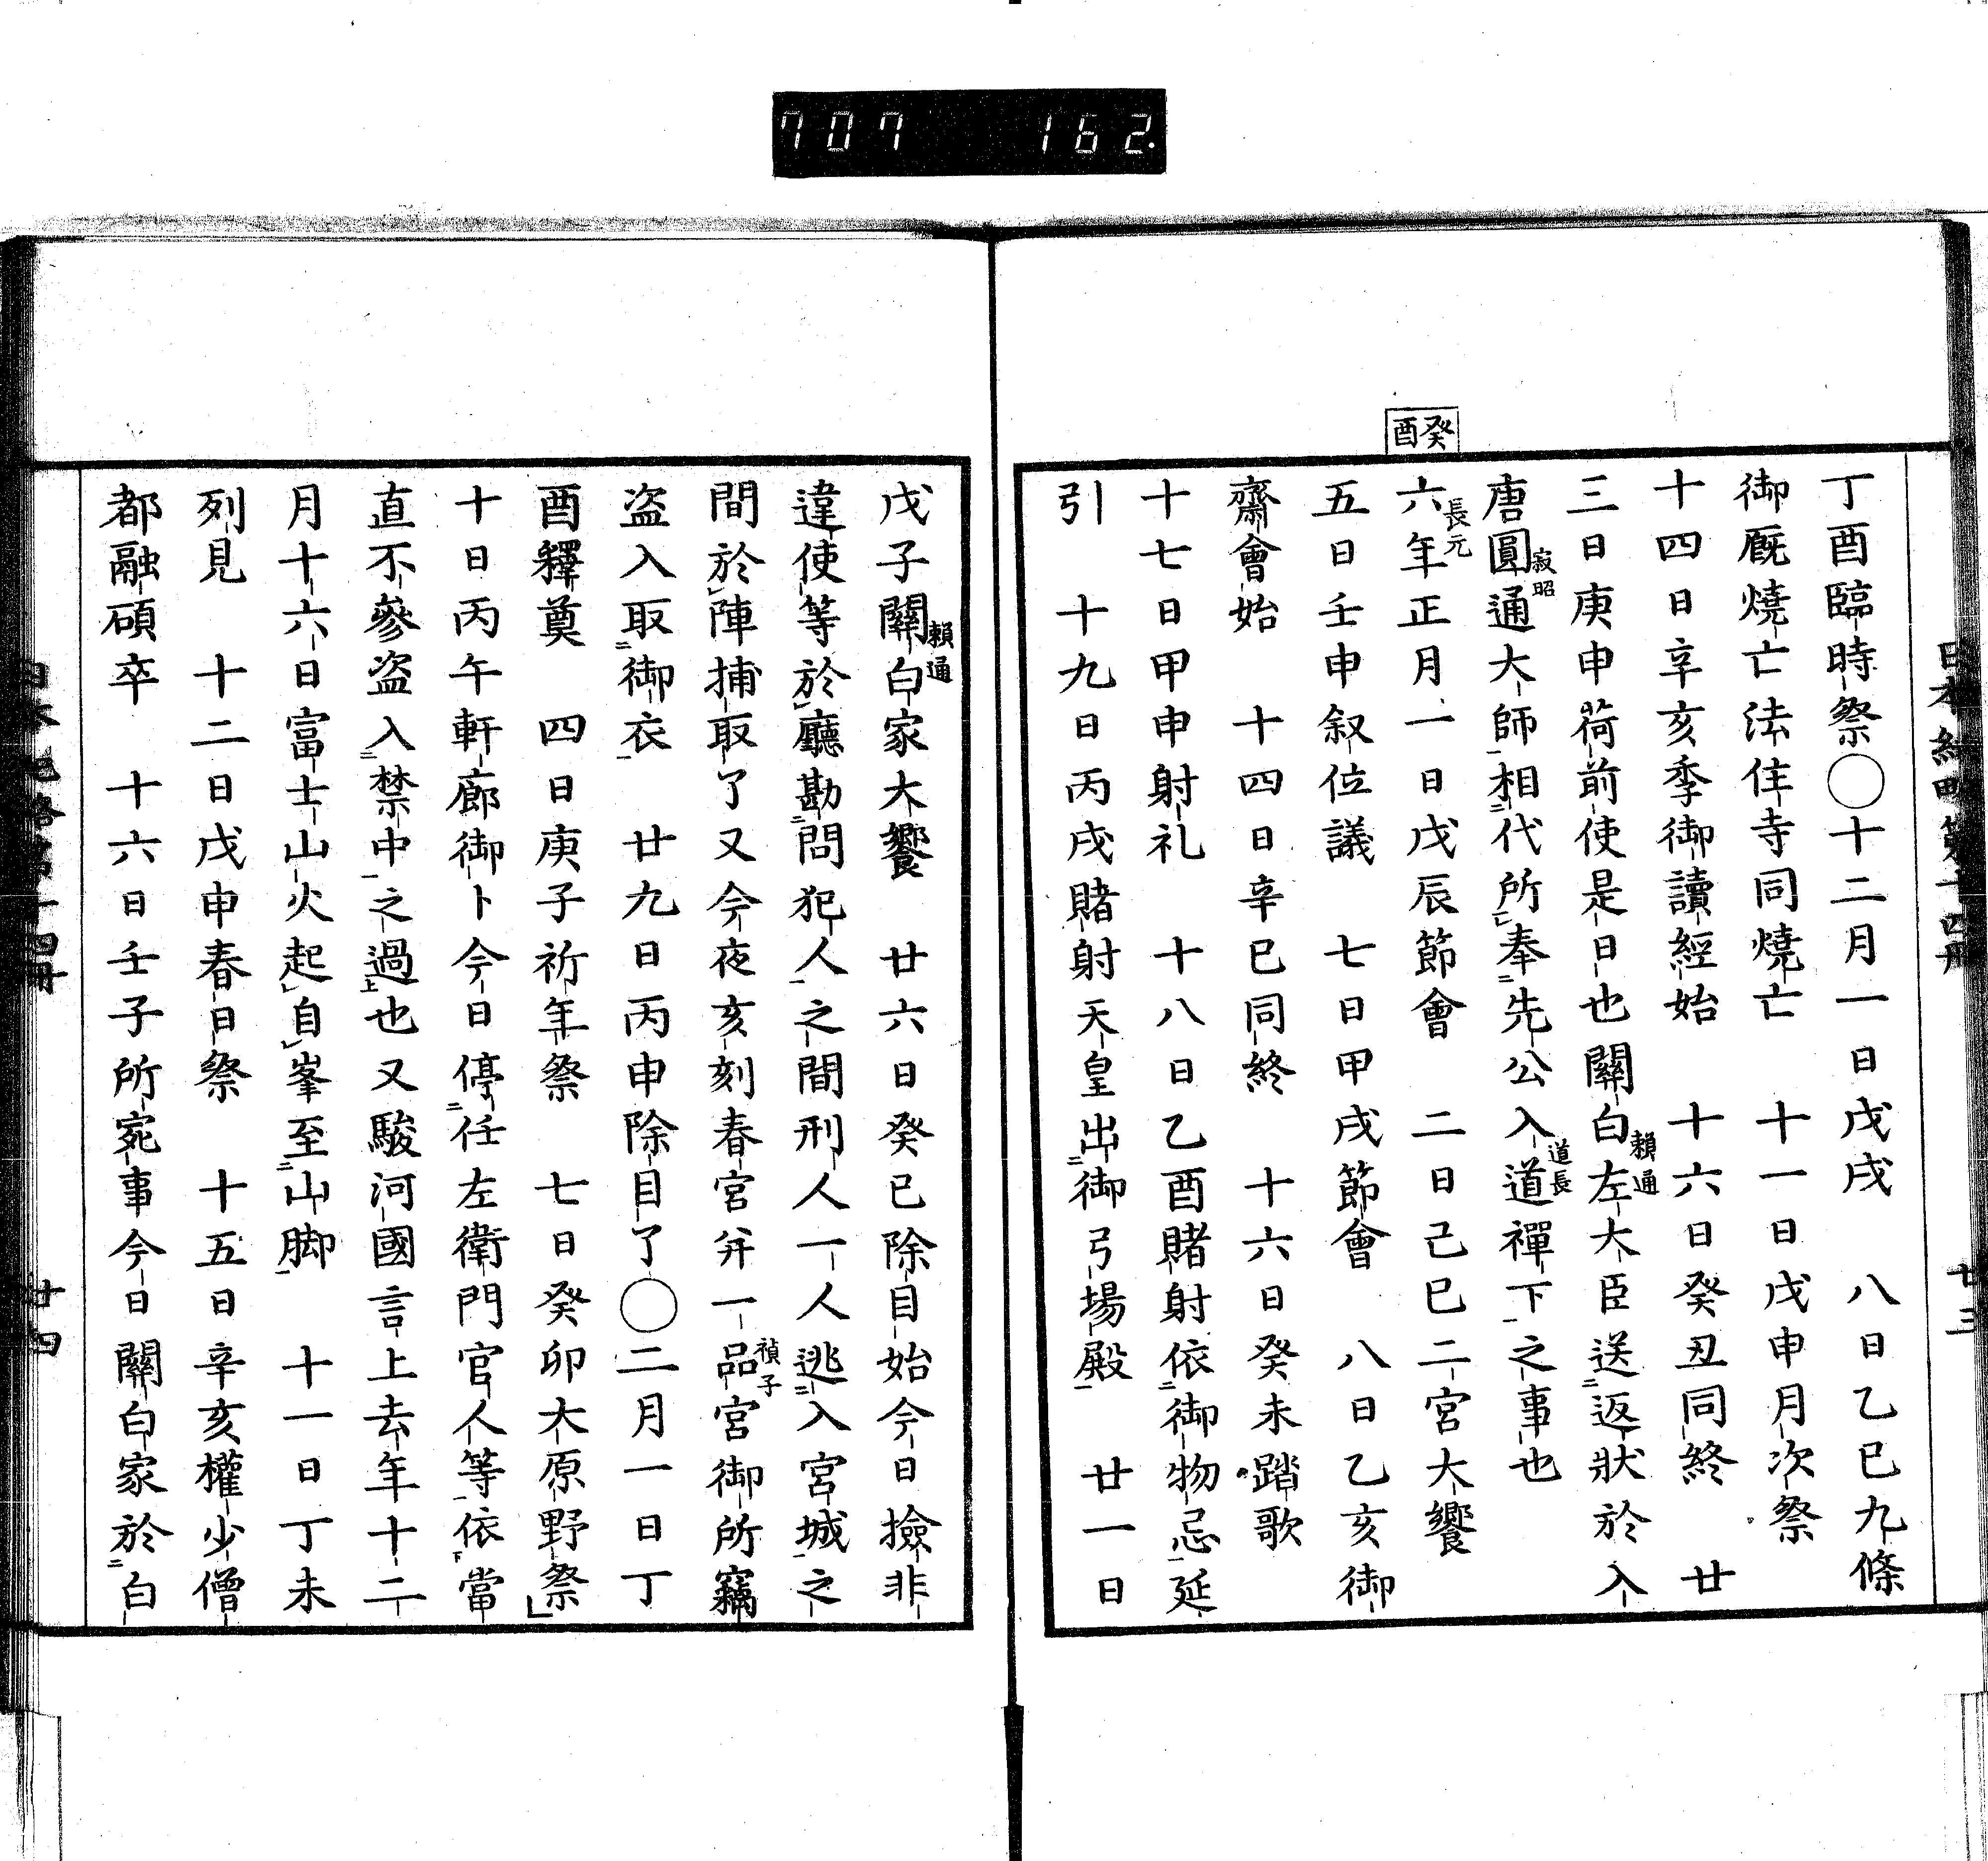 707 162.
日本紀略第十四册 廿三
丁酉臨時祭〇十二月一日戊戌 八日乙巳九條
御厩燒亡法住寺同燒亡 十一日戊申月次祭
十四日辛亥季御讀經始 十六日癸丑同終 廿
三日庚申荷前使是日也關白左大臣送二返狀於入
賴通
唐圓通大師一相二代所乚奉二先公入道禪下一之事也
寂昭
道長
癸酉
六年正月一日戊辰節會 二日己巳二宮大饗
長元
五日壬申叙位議 七日甲戌節會 八日乙亥御
齋會始 十四日辛巳同終 十六日癸未踏歌
十七日甲申射礼 十八日乙酉賭射依二御物忌一延
引 十九日丙戌賭射天皇出二御弓場殿一 廿一日
戊子關白家大饗 廿六日癸巳除目始今日撿非
賴通
違使等於乚廳勘二問犯人一之間刑人一人逃二入宮城一之
間於乚陣捕取了又今夜亥刻春宮并一品宮御所竊
禎子
盗入取二御衣一 廿九日丙申除目了〇二月一日丁
酉釋奠 四日庚子祈年祭 七日癸卯大原野祭乚
十日丙午軒廊御卜今日停二任左衛門官人等一依下當
直不參盗入二禁中一之過上也又駿河國言上去年十二
月十六日富士山火起乚自乚峯至二山脚一 十一日丁未
列見 十二日戊申春日祭 十五日辛亥權少僧
都融碩卒 十六日壬子所宛事今日關白家於二白
日本紀略第十四册 廿四